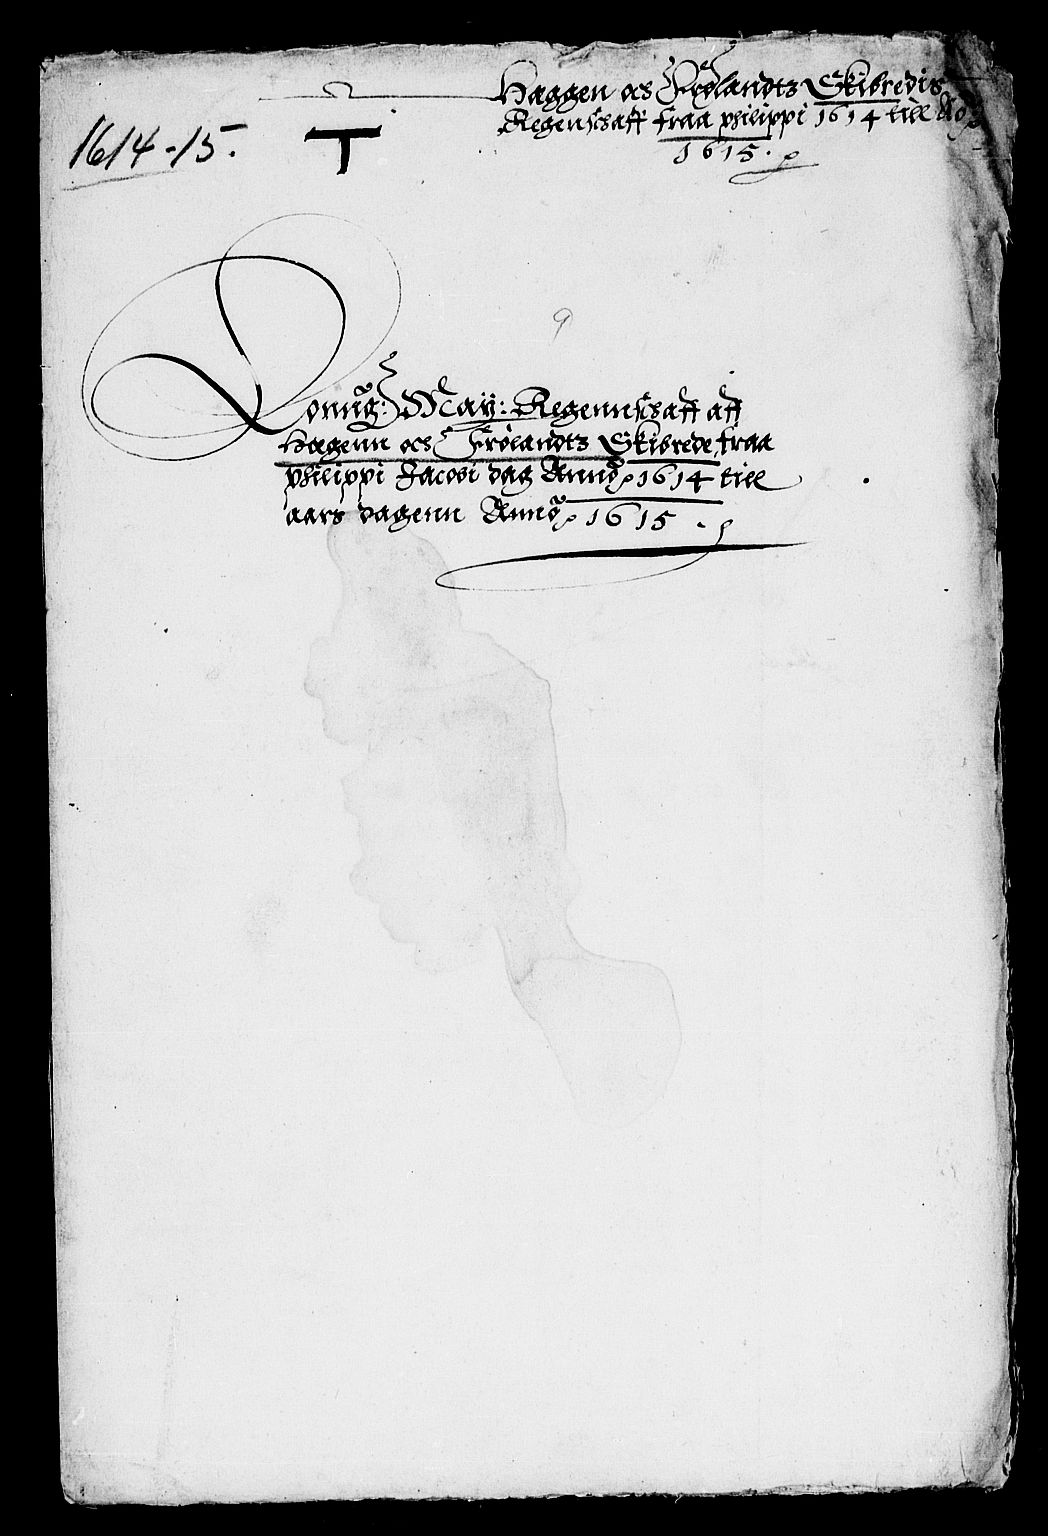 Haggen och Frølandtz Skibredis
Regenschaff fraa philippi 1614 till
1615.
1614-15.
T
9
Konng: May: Regennschaff aff
Hagenn och Frølandtz Skibrede, fraa
philippi Jacobi dag Anno 1614 till
aars dagenn Anno 1615.